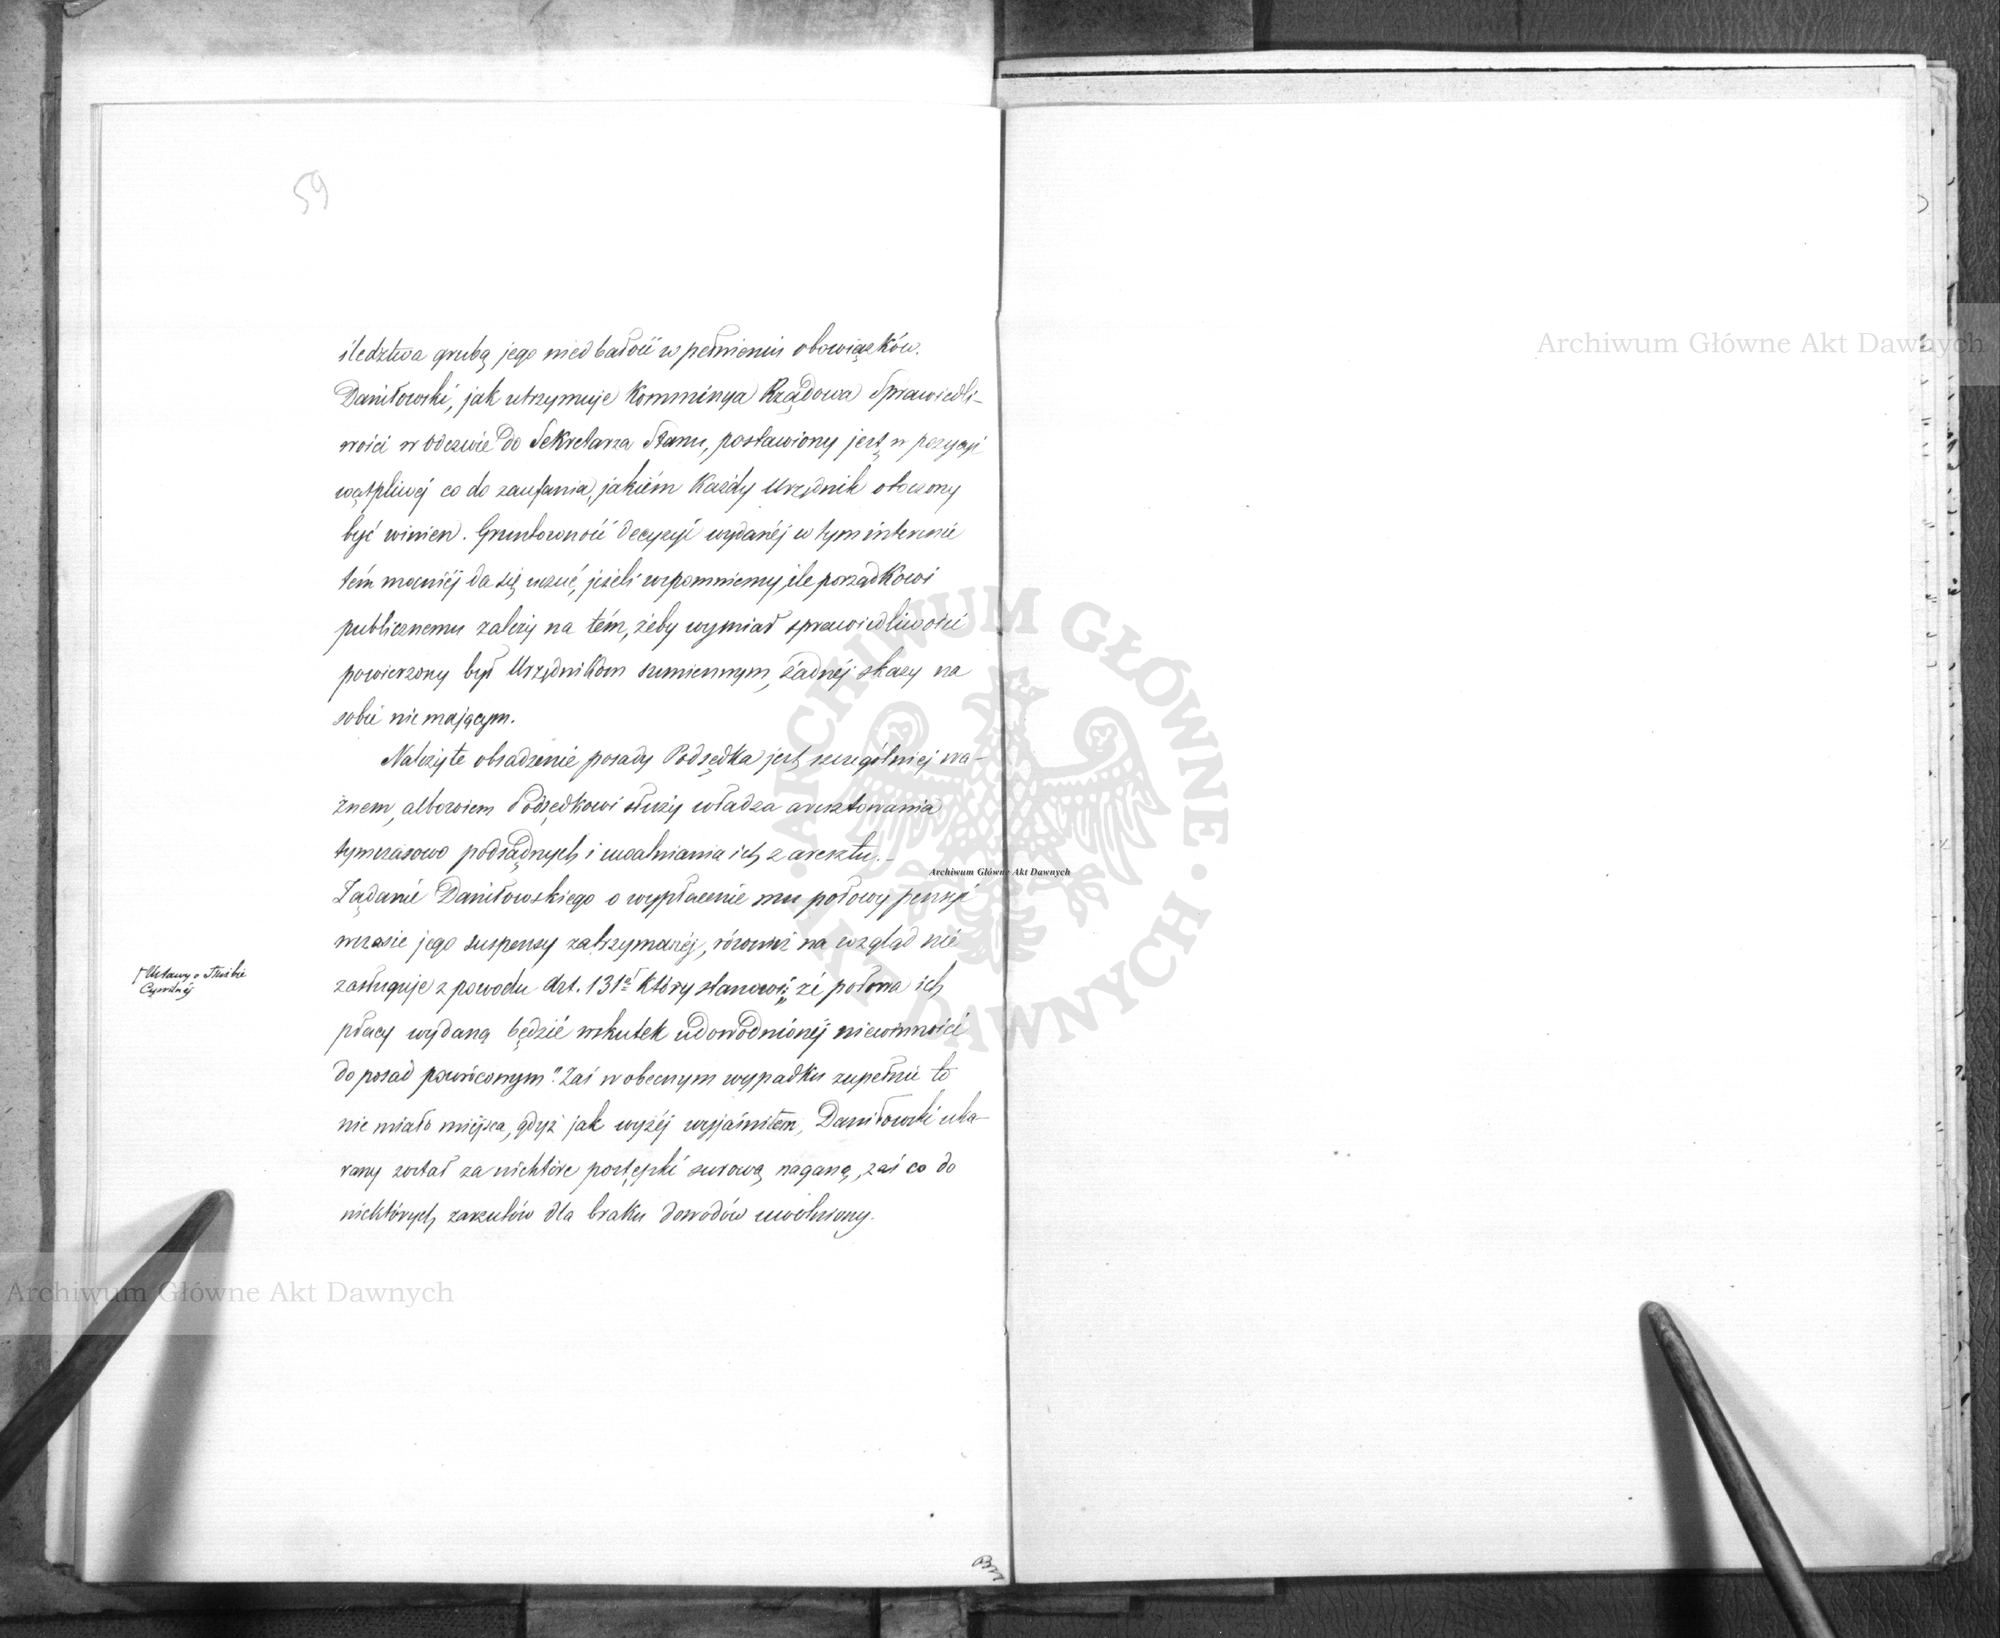 59
śledztwa grubą jego niedbałość w pełnieniu obowiązków.
Daniłowski, jak utrzymuje Kommissya Rządowa Sprawiedli-
wości w Odezwie do Sekretarza Stanu, postawiony jest w pozycyi
wątpliwéj co do zaufania, jakiém Każdy Urzędnik otoczony
być winien. Gruntowność decyzyi wydanéj w tym interesie
tém mocniéj da się uczuć, jeżeli wspomniemy, ile porządkowi
publicznemu zależy na tém, żeby wymiar sprawiedliwości
powierzony był Urzędnikom sumiennym, żadnéj skazy na
sobie nie mającym.
Należyte obsadzenie posady Podsędka jest szczególniej wa-
żnem, albowiem Podsędkowi służy władza aresztowania
tymczasowo podsądnych i uwalniania ich z aresztu.-
Żądanie Daniłowskiego o wypłacenie mu połowy pensyi
wczasie jego suspensy zatrzymanéj, również na wzgląd nie
zasługuje z powodu Art. 131 który stanowi: „że połowa ich
płacy wydaną będzie wskutek udowodnionéj niewinności
do posad powróconym". Zaś w obecnym wypadku zupełnie to
nie miało miejsca, gdyż jak wyżéj wyjaśniłem, Daniłowski uka-
rany został za niektóre postępki surową naganą, zaś co do
niektórych zarzutów dla braku dowodów uwolniony.
Ustawy o Służbie
Cywilnéj
Archiwum Główne Akt Dawnych
Archiwum Główne Akt Dawnych
Archiwum Główne Akt Dawnych
ARCHIWUM GŁÓWNE AKT DAWNYCH